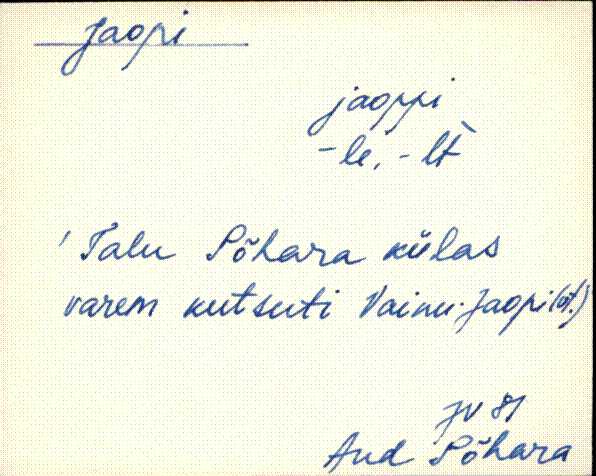 Jaopi
jaoppi
-le, -lt
'Talu Põhara külas
varem kutsuti Vainu-Jaopi (vt.)
JV 81
Aud Põhara